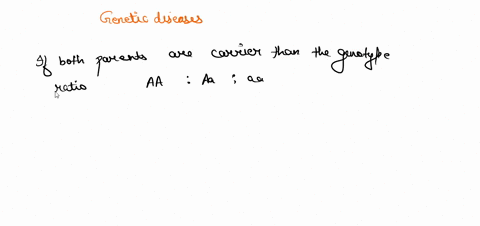 Genetic diseases
If both parents are carrier than the genotype
ratio AA : Aa : aa